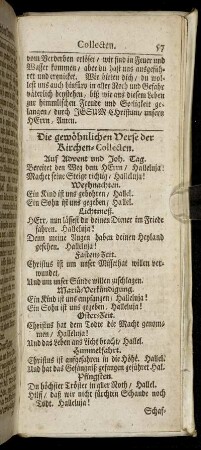 Collecten. 57
vom Verderben erlöset, wir sind in Feuer und
Wasser kommen, aber du hast uns ausgefüh-
ret und erquicket. Wir bitten dich, du wol-
lest uns auch hinfüro in aller Noth und Gefahr
väterlich beystehen, biß wir aus diesem Leben
zur himmlischen Freude und Seligkeit ge-
langen, durch JESUM Christum, unsern
HErrn, Amen.
Die gewöhnlichen Verse der
Kirchen-Collecten.
Auf Advent und Joh. Tag.
Bereitet den Weg dem HErrn, Halleluja!
Machet seine Steige richtig, Halleluja!
Weyhnachten.
Ein Kind ist uns gebohren, Hallel.
Ein Sohn ist uns gegeben, Hallel.
Lichtmeß.
HErr, nun lässest du deinen Diener im Friede
fahren. Halleluja!
Denn meine Augen haben deinen Heyland
gesehen. Halleluja!
Fasten-Zeit.
Christus ist um unser Missethat willen ver-
wundet,
Und um unser Sünde willen zuschlagen.
Mariä-Verkündigung.
Ein Kind ist uns empfangen, Halleluja!
Ein Sohn ist uns gegeben. Halleluja!
Oster-Zeit.
Christus hat dem Todte die Macht genom-
men, Halleluja!
Und das Leben ans Licht bracht, Hallel.
Himmelfahrt.
Christus ist aufgefahren in die Höhe. Hallel.
Und hat das Gefängniß gefangen geführet. Hal.
Pfingsten.
Du höchster Tröster in aller Noth, Hallel.
Hilff, daß wir nicht fürchten Schande noch
Todt. Halleluja!
Schaf-